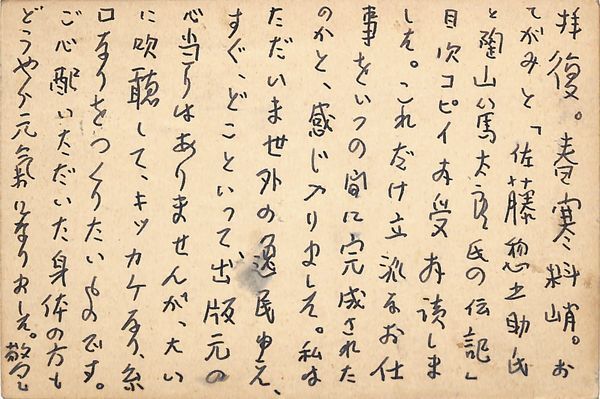 拝復。春寒料峭。お
てがみと「佐藤惣之助氏
と陶山篤太郎氏の伝記」
目次コピイ拝受拝読しま
した。これだけ立派なお仕
事をいつの間に完成された
のかと、感じ入りました。私は
ただいま世外の逸民ゆえ、
すぐ、どこといって、出版元の
心当りはありませんが、大い
に吹聴して、キッカケなり、糸
口なりをつくりたいものです。
ご心配いただいた身体の方も
どうやら元気になりました。敬具